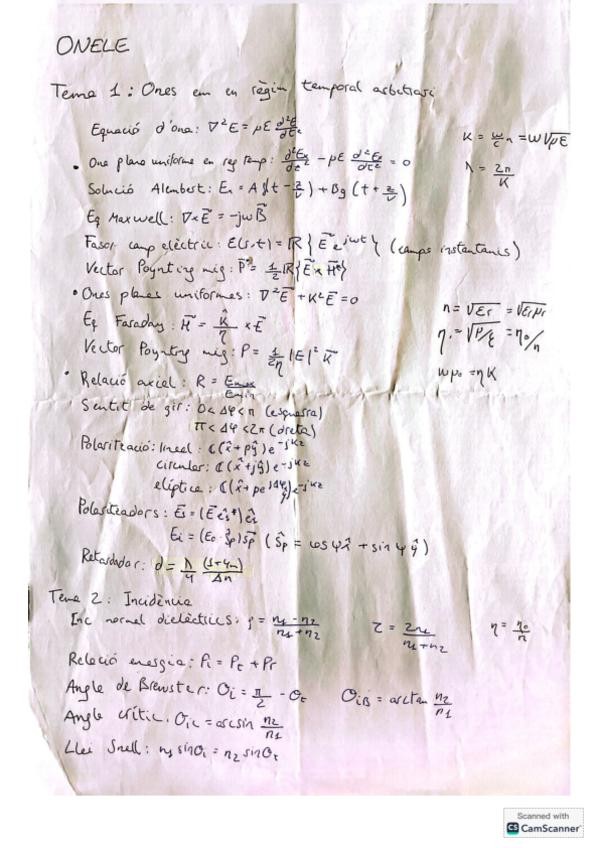 ONELE
Tema 1: Ones em en règim temporal arbitrari
Equació d'ona: ∇²E = με ∂²E/∂t²
K = w/c n = w√με
• Ona plana uniforme en reg temp: ∂²Ex/∂z² - με ∂²Ex/∂t² = 0
λ = 2π/K
Solució Alembert: Ex = Af(t - z/v) + Bg(t + z/v)
Eq Maxwell: ∇×E⃗ = -jwB⃗
Fasor camp elèctric: E(r,t) = ℝ{E⃗ e^jwt} (camps instantanis)
Vector Poynting mig: P⃗ = 1/2 ℝ{E⃗ × H⃗*}
• Ones planes uniformes: ∇²E⃗ + K²E⃗ = 0
n = √εr = √εrμr
Eq Faraday: H⃗ = K̂/η × E⃗
η = √μ/ε = η0/n
Vector Poynting mig: P = 1/2η |E|² K⃗
wμ0 = ηK
• Relació axial: R = Emax/Emin
Sentit de gir: 0 < Δφ < π (esquerra)
π < Δφ < 2π (dreta)
Polarització: lineal: C(x̂ + pŷ)e^-jkz
circular: C(x̂ + jŷ)e^-jkz
elíptica: C(x̂ + pe^jΔφ ŷ)e^-jkz
Polaritzadors: Es = (E⃗ ês*)ês
Ei = (E0 · ŝp)ŝp (ŝp = cos ψ x̂ + sin ψ ŷ)
Retardador: d = λ/4 (1+4m)/Δn
Tema 2: Incidència
Inc normal dielèctrics: ρ = n1 - n2/n1 + n2
τ = 2n1/n1 + n2
η = η0/n
Relació energia: Pi = Pt + Pr
Angle de Brewster: Θi = π/2 - Θt
ΘiB = arctan n2/n1
Angle crític: Θic = arcsin n2/n1
Llei Snell: n1 sinΘi = n2 sinΘt
Scanned with
CS CamScanner